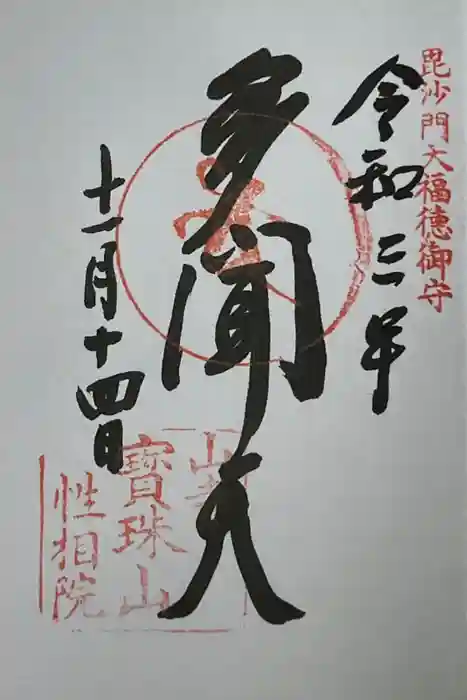 毘沙門大福徳御守
令和三年
多聞天
十一月十四日
寶珠山
性相院